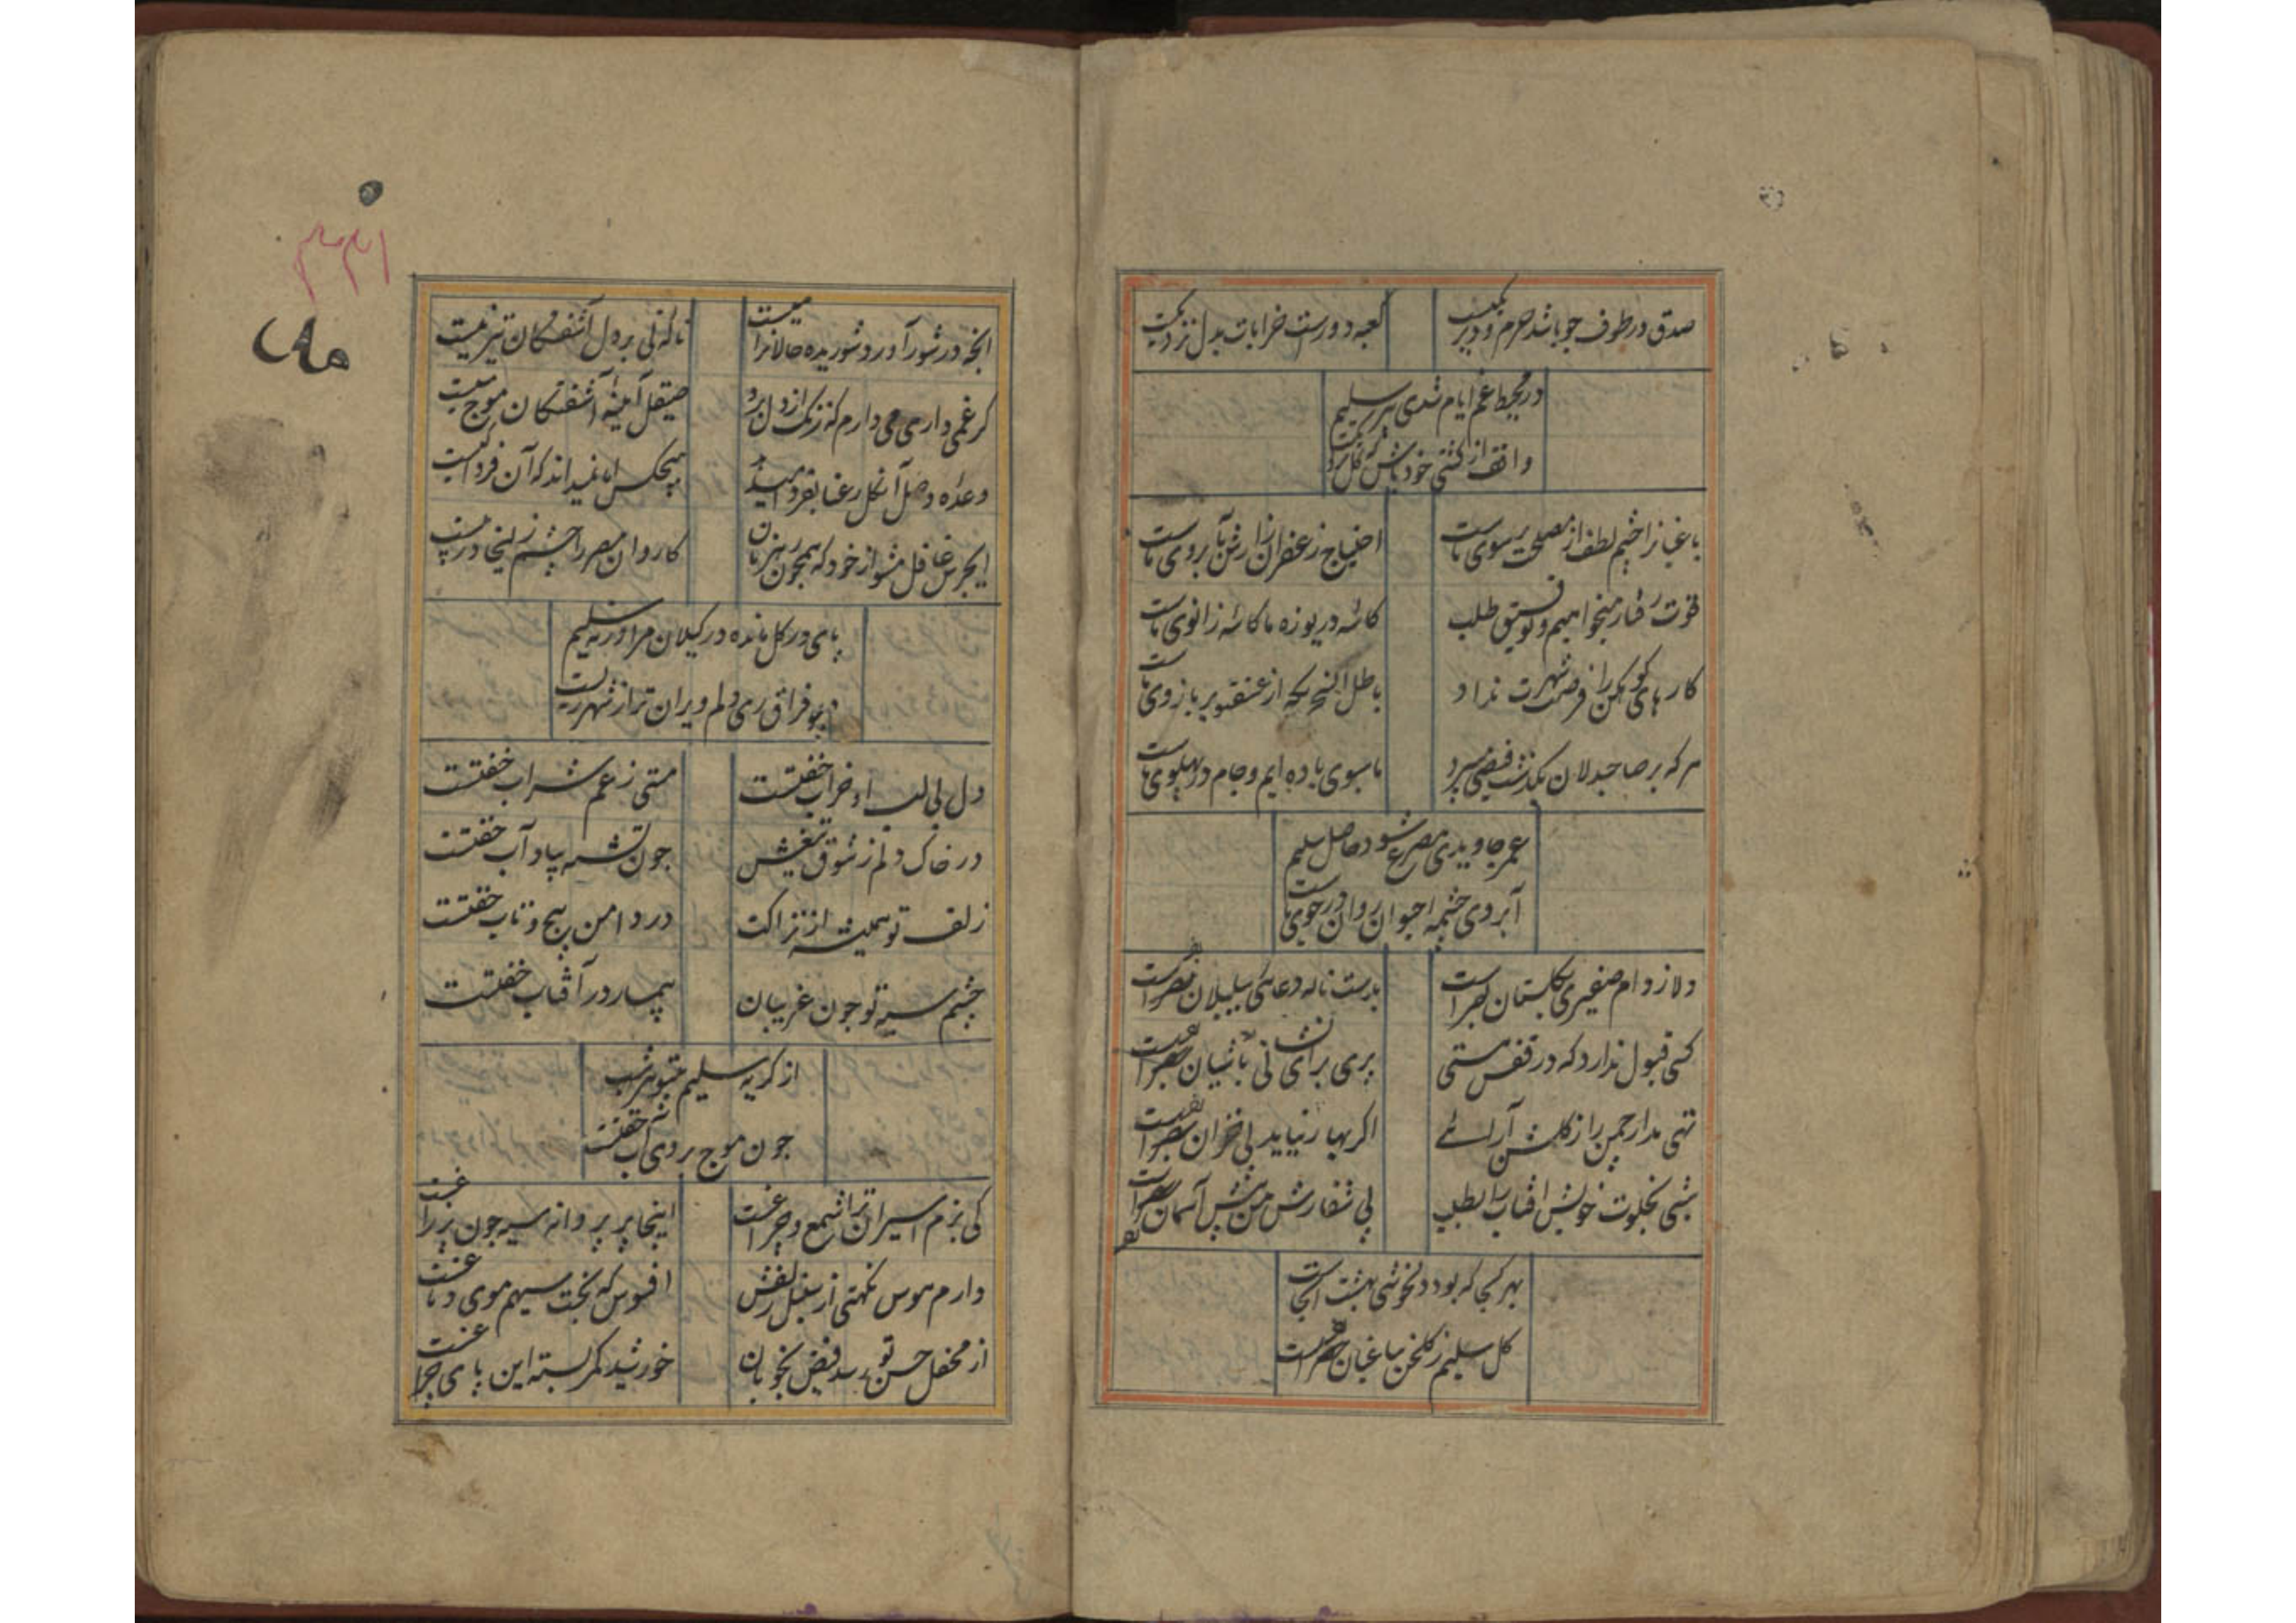 صدق در طوف جو باشد حرم و دیر یکیست
کعبه دورست خرابات بدل نزدیکست
در محیط غم ایام شدی پیر سلیم
واقف از کشتی خود باش که
باغبانرا چشم لطف از مصلحت بر سوی ماست
احتیاج زعفران زارش بآب روی ماست
قوت رفتار میخواهیم و توفیق طلب
کاسه دریوزه ما کاسه زانوی ماست
کارهای کوهکن را فرصت شهرت نداد
باطل السحریکه از عشقتو بر بازوی ماست
هرکه بر صاحبدلان بگذشت فیضی میبرد
ما سبوی باده ایم و جام در پهلوی ماست
عمر جاویدی ز مصرع شود حاصل سلیم
آبروی چشمه حیوان روان در جوی ماست
دلا ز دام صفیری بگلستان بفرست
بدست ناله دعای ببلبلان بفرست
کسی قبول ندارد که در قفس هستی
پری برای نشانی بآشیان بفرست
تهی مدار چمن را ز گلشن آرائے
اگر بهار نیاید پی خزان بفرست
شبی بخلوت خویش آفتاب را بطلب
پی سفارش من پیش آسمان بفرست
بهر کجا که بود دلخوشی بهشت آنجاست
گل سلیم ز گلخن بباغبان بفرست
۳۳۱
آنچه در شور آورد شوریده حالانرا میست
ناله نی بر دل آشفتگان تیر نیست
گر غمی داری می دارم که زنگ از دل برد
صیقل آیینه آشفتگان موج میست
وعده وصل آن گل رعنا بفردا میدهد
هیچکس اما نمیداند که آن فردا کیست
ای جرس غافل مشو از خود که همچون رهزنان
کاروان مصر را چشم زلیخا در پیست
پای در گل مانده در گیلان مرا ورنه سلیم
در فراق ری دلم ویران تر از شهر ریست
دل بی لب او خراب خفتست
مستی ز غم شراب خفتست
در خاک دلم ز شوق تیغش
جون تشنه بیاد آب خفتست
زلف تو همیشه از نزاکت
در دامن پیچ و تاب خفتست
چشم سیه تو جون غریبان
بیمار در آفتاب خفتست
از گریه سلیم بیتو هر شب
جون موج بروی آب خفتست
کی بزم اسیران ترا شمع و چراغست
اینجا پر پروانه سیه جون پر زاغست
دارم هوس نکهتی از سنبل زلفش
افسوس که بخت سیهم موی دماغست
از محفل حسن تو رسد فیض بخوبان
خورشید کمر بسته این پای چراغست